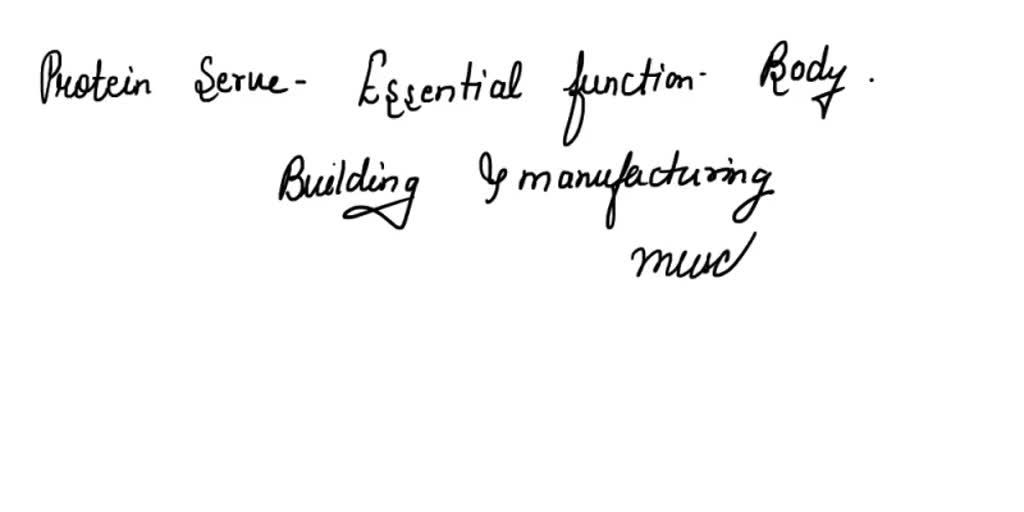 Protein Serve- Essential function- Body.
Building & manufacturing
musc